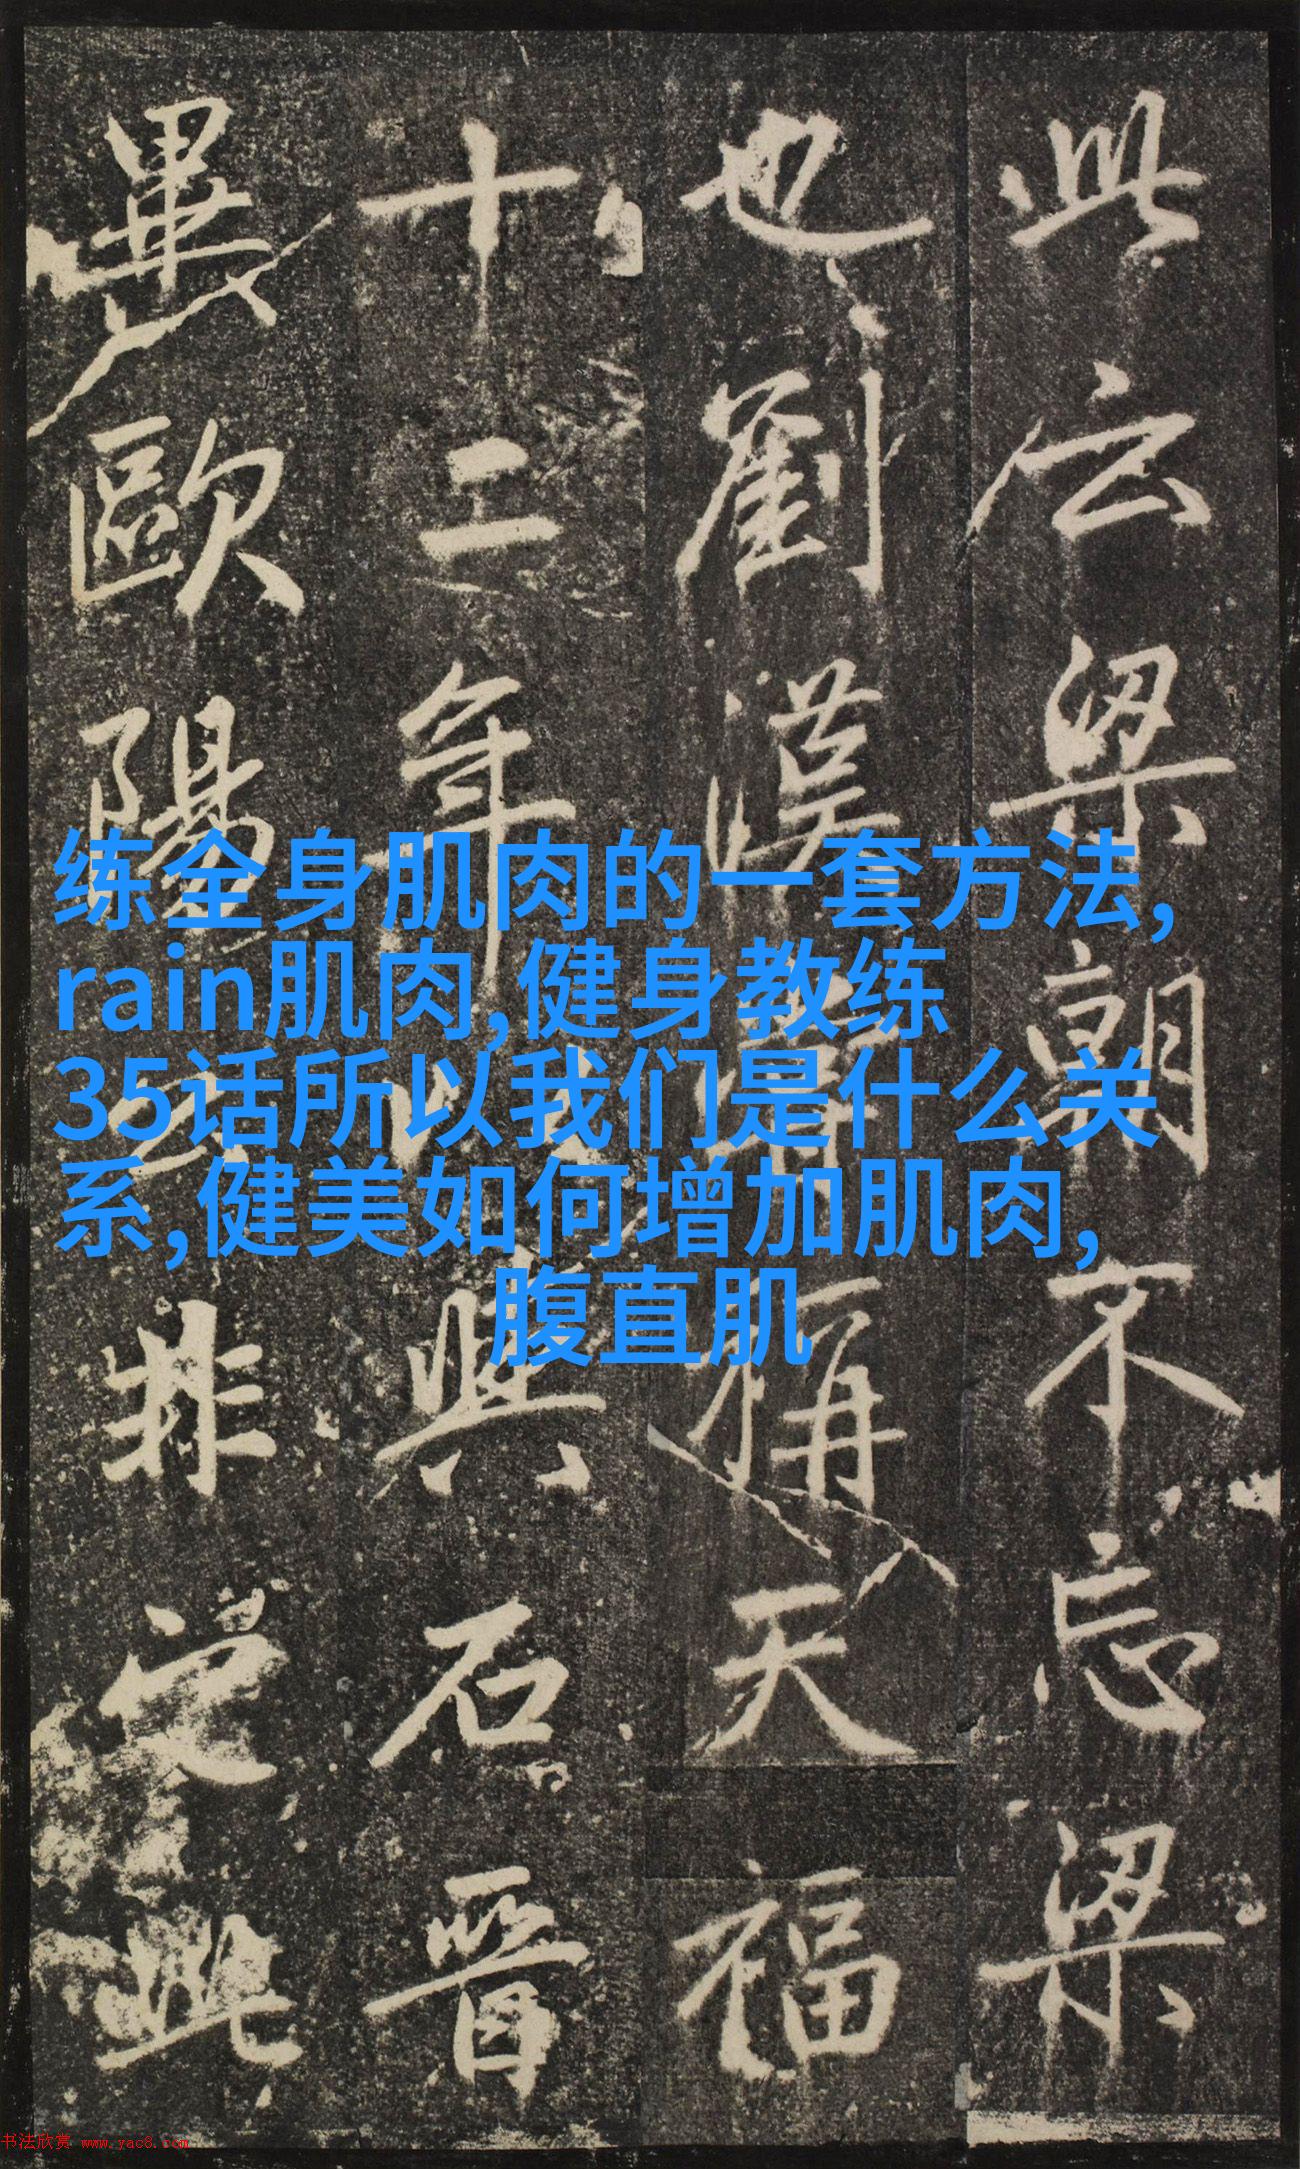 此云梁朝不忘梁
也劉漢稱天福
十二年以與石晉
畢歐陽公非此
练全身肌肉的一套方法,
rain肌肉,健身教练
35话所以我们是什么关
系,健美如何增加肌肉,
腹直肌
书法欣赏 www.yac8.com